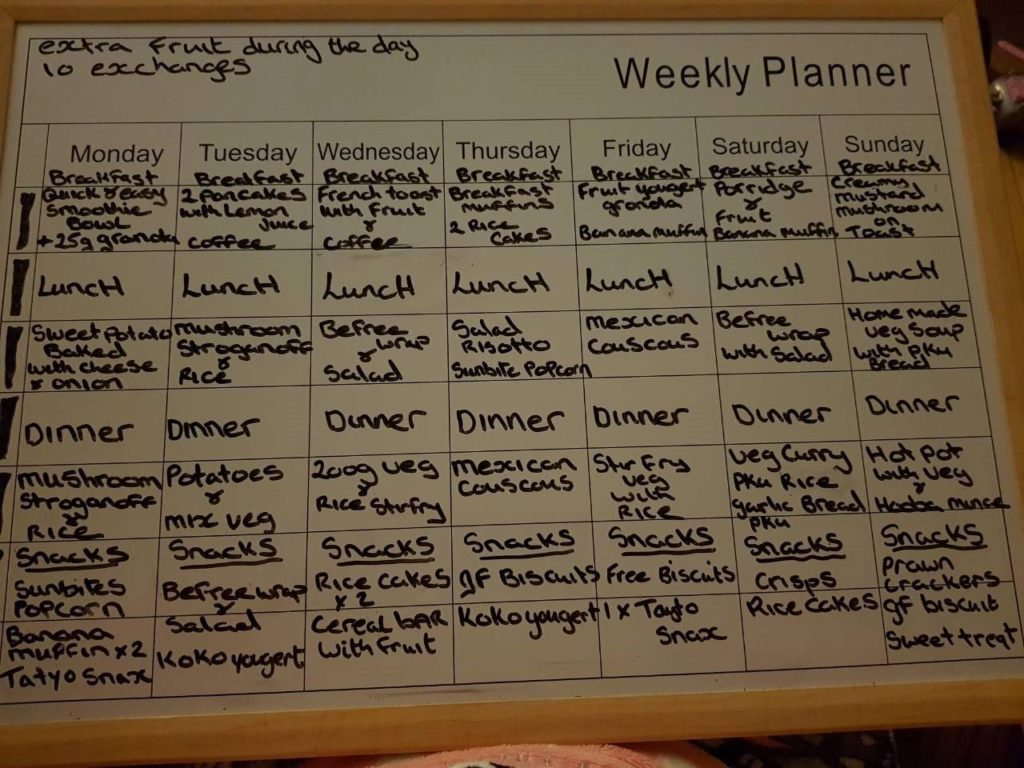 extra fruit during the day
10 exchanges
Weekly Planner
Monday
Breakfast
Quick & easy
Smoothie
Bowl
+25g granola
Lunch
Sweet potato
Baked
with cheese
& onion
Dinner
mushroom
Stroganoff
&
Rice
Snacks
Sunbites
Popcorn
Banana
muffin x2
Tatyo Snax
Tuesday
Breakfast
2 Pancakes
with Lemon
Juice
Coffee
Lunch
mushroom
Stroganoff
&
Rice
Dinner
Potatoes
&
mix veg
Snacks
Befree wrap
&
Salad
Koko yogert
Wednesday
Breakfast
French toast
with fruit
&
Coffee
Lunch
Befree
wrap
&
Salad
Dinner
200g veg
&
Rice Stirfry
Snacks
Rice cakes
x 2
Cereal bar
with fruit
Thursday
Breakfast
Breakfast
muffins
2 Rice
Cakes
Lunch
Salad
Risotto
Sunbite Popcorn
Dinner
mexican
couscous
Snacks
gf Biscuits
Koko yougert
Friday
Breakfast
Fruit yougert
granola
Banana muffin
Lunch
mexican
couscous
Dinner
Stir Fry
veg
with
Rice
Snacks
Free Biscuits
1 x Tayto
Snax
Saturday
Breakfast
Porridge
&
Fruit
Banana muffin
Lunch
Befree
wrap
with Salad
Dinner
veg Curry
PKU Rice
garlic Bread
PKU
Snacks
Crisps
Rice Cakes
Sunday
Breakfast
Creamy
mustard
mushroom
on
Toast
Lunch
Home made
veg Soup
with PKU
Bread
Dinner
Hot Pot
with veg
&
Hooba mince
Snacks
Prawn
Crackers
gf biscuit
Sweet treat